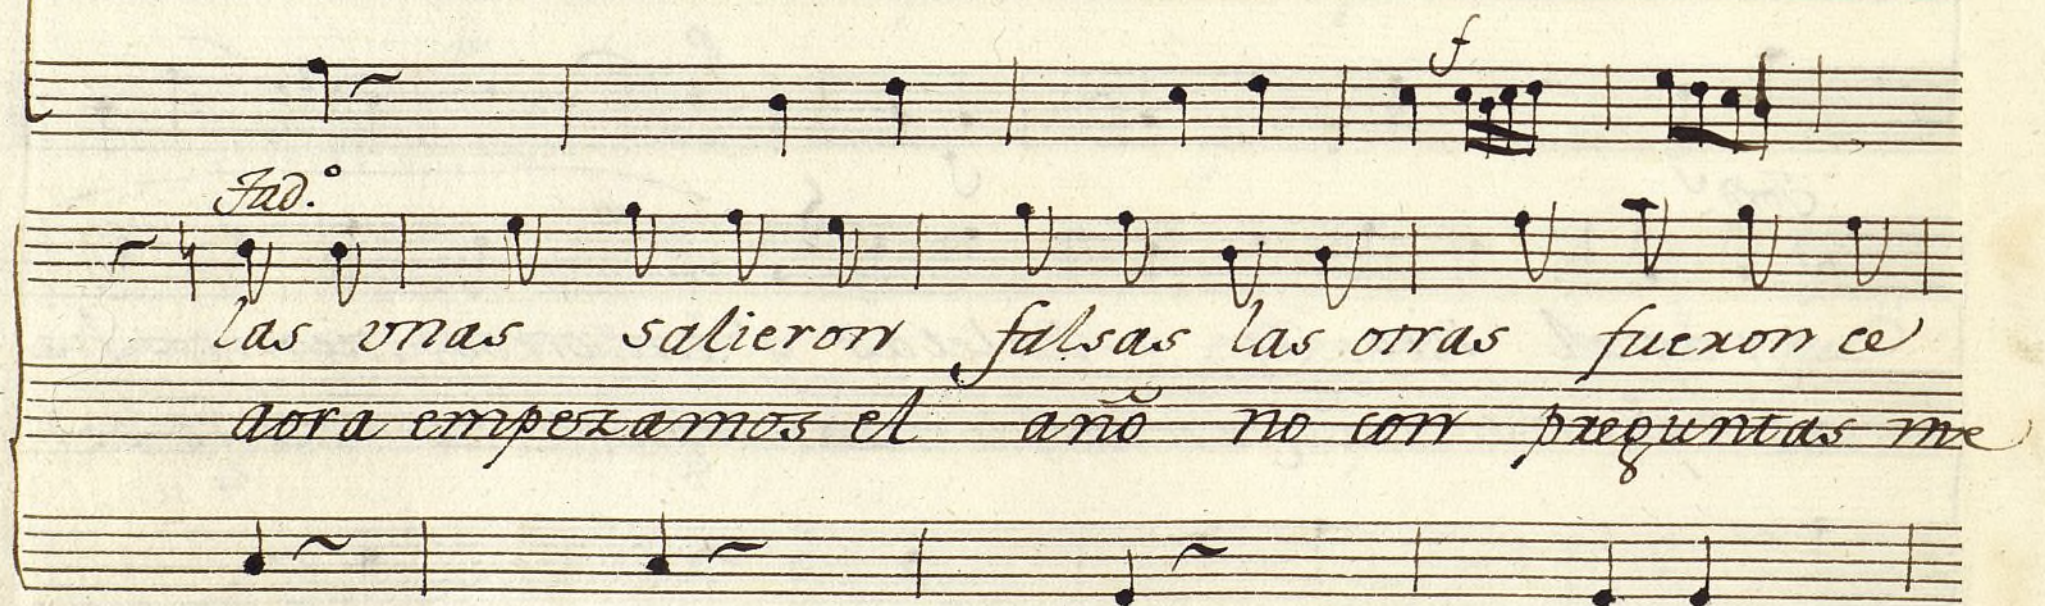 f
Tad.º
las vnas salieron falsas las otras fueron ce
aora empezamos el año no con preguntas me